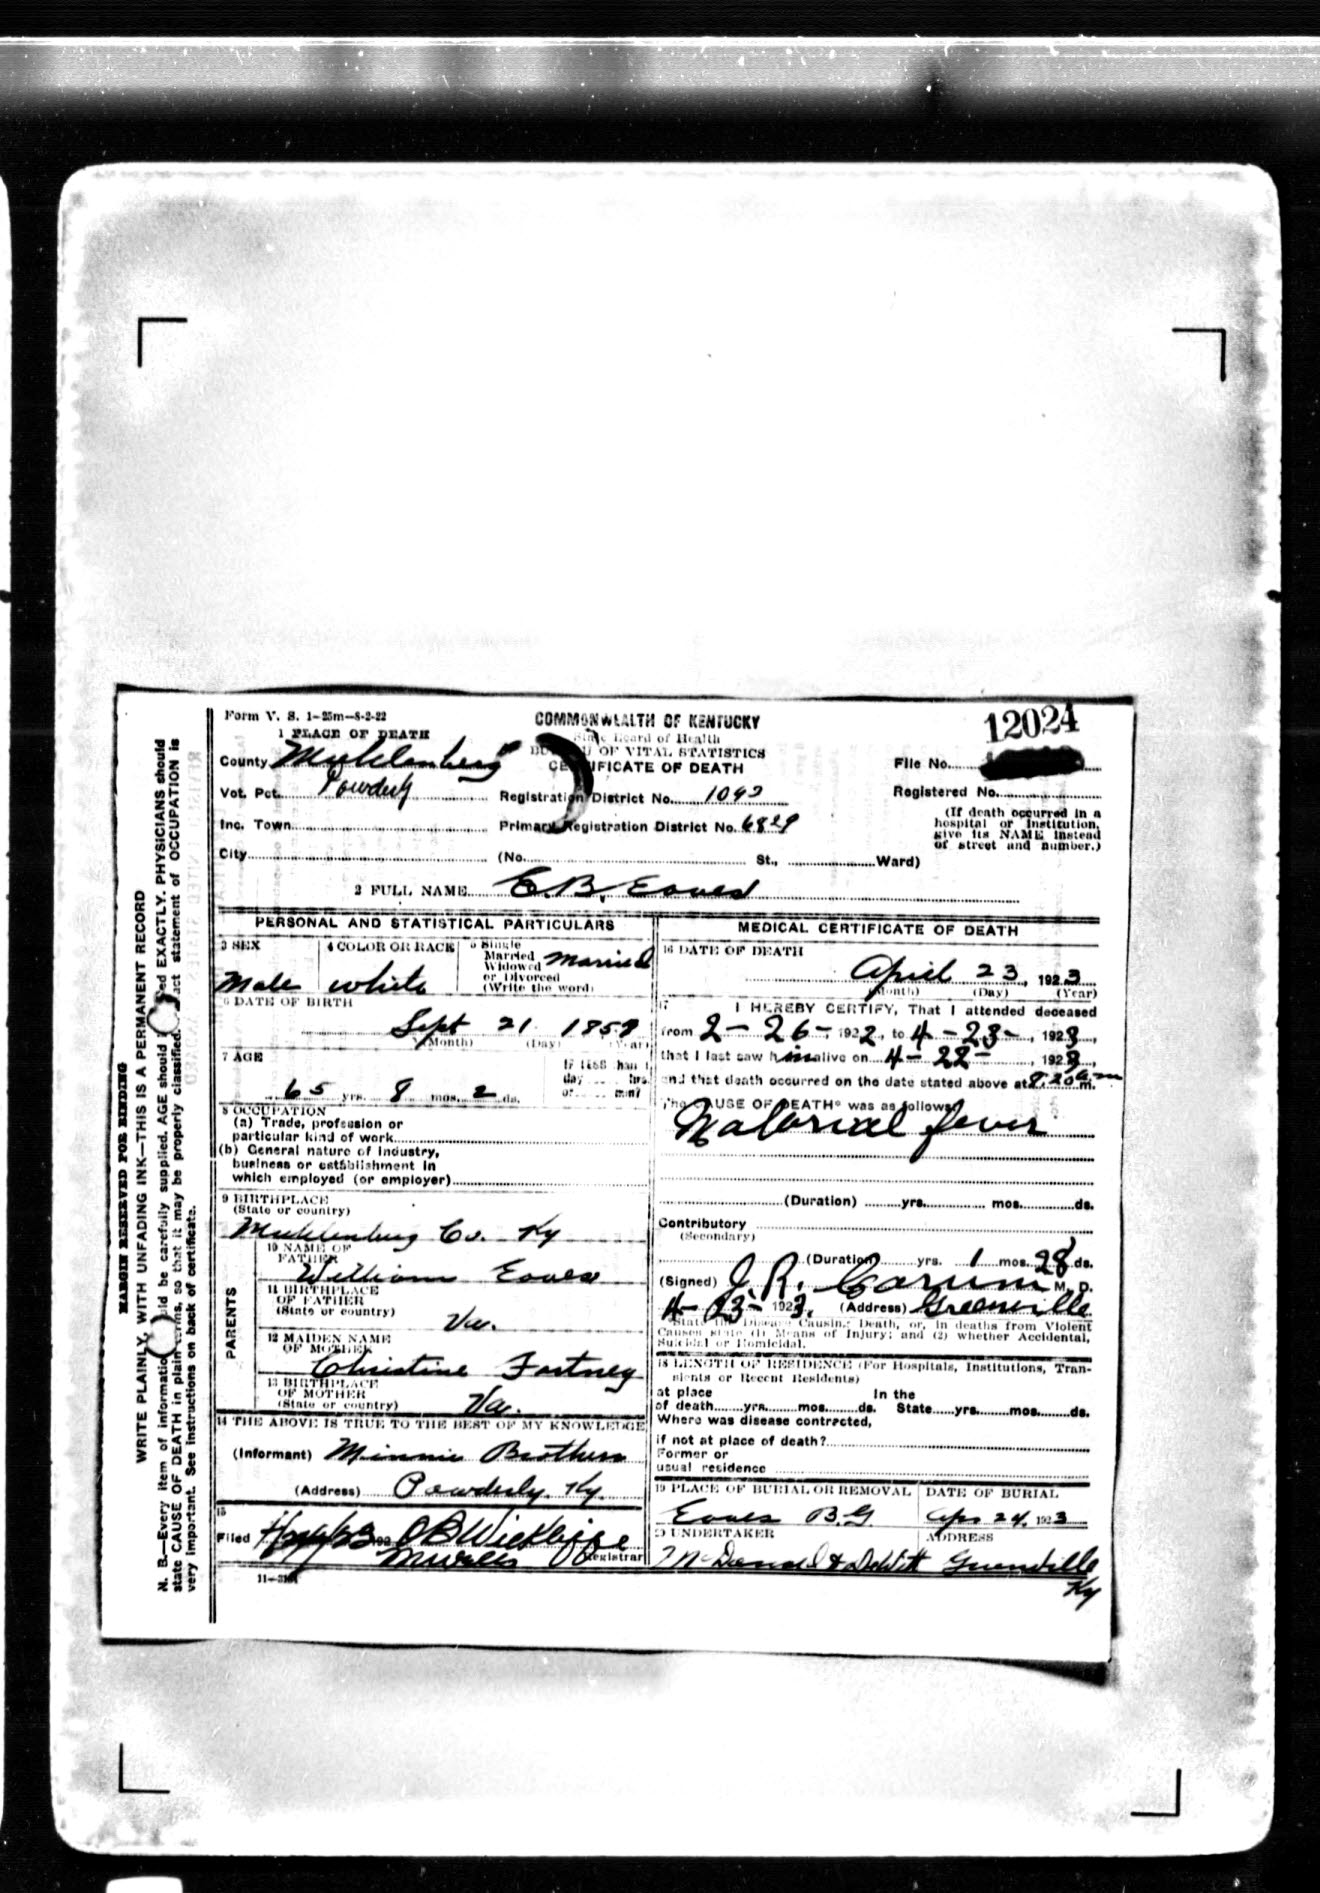 Form V. S. 1-25m-8-2-22
COMMONWEALTH OF KENTUCKY
State Board of Health
BUREAU OF VITAL STATISTICS
CERTIFICATE OF DEATH
12024
File No.
Registered No.
(If death occurred in a
hospital or institution,
give its NAME instead
of street and number.)
1 PLACE OF DEATH
County Muhlenberg
Vot. Pct. Powderly
Registration District No. 1092
Inc. Town
Primary Registration District No. 6829
City (No. St., Ward)
2 FULL NAME E. B. Eaves
PERSONAL AND STATISTICAL PARTICULARS
3 SEX
Male
4 COLOR OR RACE
white
5 Single
Married
Widowed
or Divorced
(Write the word)
Married
6 DATE OF BIRTH
Sept 21 1857
(Month) (Day) (Year)
7 AGE
65 yrs. 8 mos. 2 ds.
If LESS than 1
day hrs.
or min?
8 OCCUPATION
(a) Trade, profession or
particular kind of work
(b) General nature of industry,
business or establishment in
which employed (or employer)
9 BIRTHPLACE
(State or country)
Muhlenburg Co. Ky
PARENTS
10 NAME OF
FATHER
William Eaves
11 BIRTHPLACE
OF FATHER
(State or country)
Va.
12 MAIDEN NAME
OF MOTHER
Christine Fortney
13 BIRTHPLACE
OF MOTHER
(State or country)
Va.
14 THE ABOVE IS TRUE TO THE BEST OF MY KNOWLEDGE
(Informant) Minnie Brothers
(Address) Powderly. Ky.
15
Filed 192 O B Wickliffe
Registrar
11-3184
MEDICAL CERTIFICATE OF DEATH
16 DATE OF DEATH
April 23, 1923
(Month) (Day) (Year)
17 I HEREBY CERTIFY, That I attended deceased
from 2-26-, 1922, to 4-23-, 1923,
that I last saw him alive on 4-22-, 1923,
and that death occurred on the date stated above at 8.20 a m m.
The CAUSE OF DEATH* was as follows:
Malarial fever
(Duration) yrs. mos. ds.
Contributory
(Secondary)
(Duration) yrs. 1 mos. 28 ds.
(Signed) J. R. M. D.
4-23-1923. (Address) Greenville
State the Disease Causing Death, or, in deaths from Violent
Causes state (1) Means of Injury; and (2) whether Accidental,
Suicidal or Homicidal.
18 LENGTH OF RESIDENCE (For Hospitals, Institutions, Tran-
sients or Recent Residents)
at place In the
of death yrs. mos. ds. State yrs. mos. ds.
Where was disease contracted,
if not at place of death?
Former or
usual residence
19 PLACE OF BURIAL OR REMOVAL
Eaves B.G.
DATE OF BURIAL
Apr 24, 1923
20 UNDERTAKER
McDonald & DeWitt
ADDRESS
Greenville
Ky
MARGIN RESERVED FOR BINDING
WRITE PLAINLY, WITH UNFADING INK—THIS IS A PERMANENT RECORD
N. B.—Every item of information should be carefully supplied. AGE should be stated EXACTLY. PHYSICIANS should
state CAUSE OF DEATH in plain terms, so that it may be properly classified. Exact statement of OCCUPATION is
very important. See instructions on back of certificate.